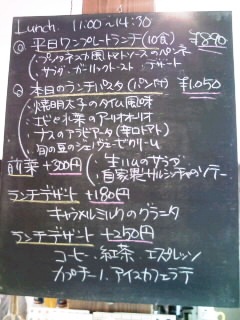 Lunch 11:00~14:30
① 平日ワンプレートランチ(10食) ¥890
・プッタネスカ風トマトソースのペンネ
・サラダ・ガーリックトースト・デザート
② 本日のランチパスタ(パン付) ¥1,050
・焼明太子のタイム風味
・エビと小葉のアーリオオーリオ
・ナスのアラビアータ(辛口トマト)
・旬の豆のシェーヴェーゼクリーム
前菜 +200円
・生ハムのサラダ
・自家製サルシッチャソテー
ランチデザート +180円
キャラメルミルクのグラニータ
ランチデザート +250円
コーヒー、紅茶、エスプレッソ
カプチーノ、アイスカフェラテ